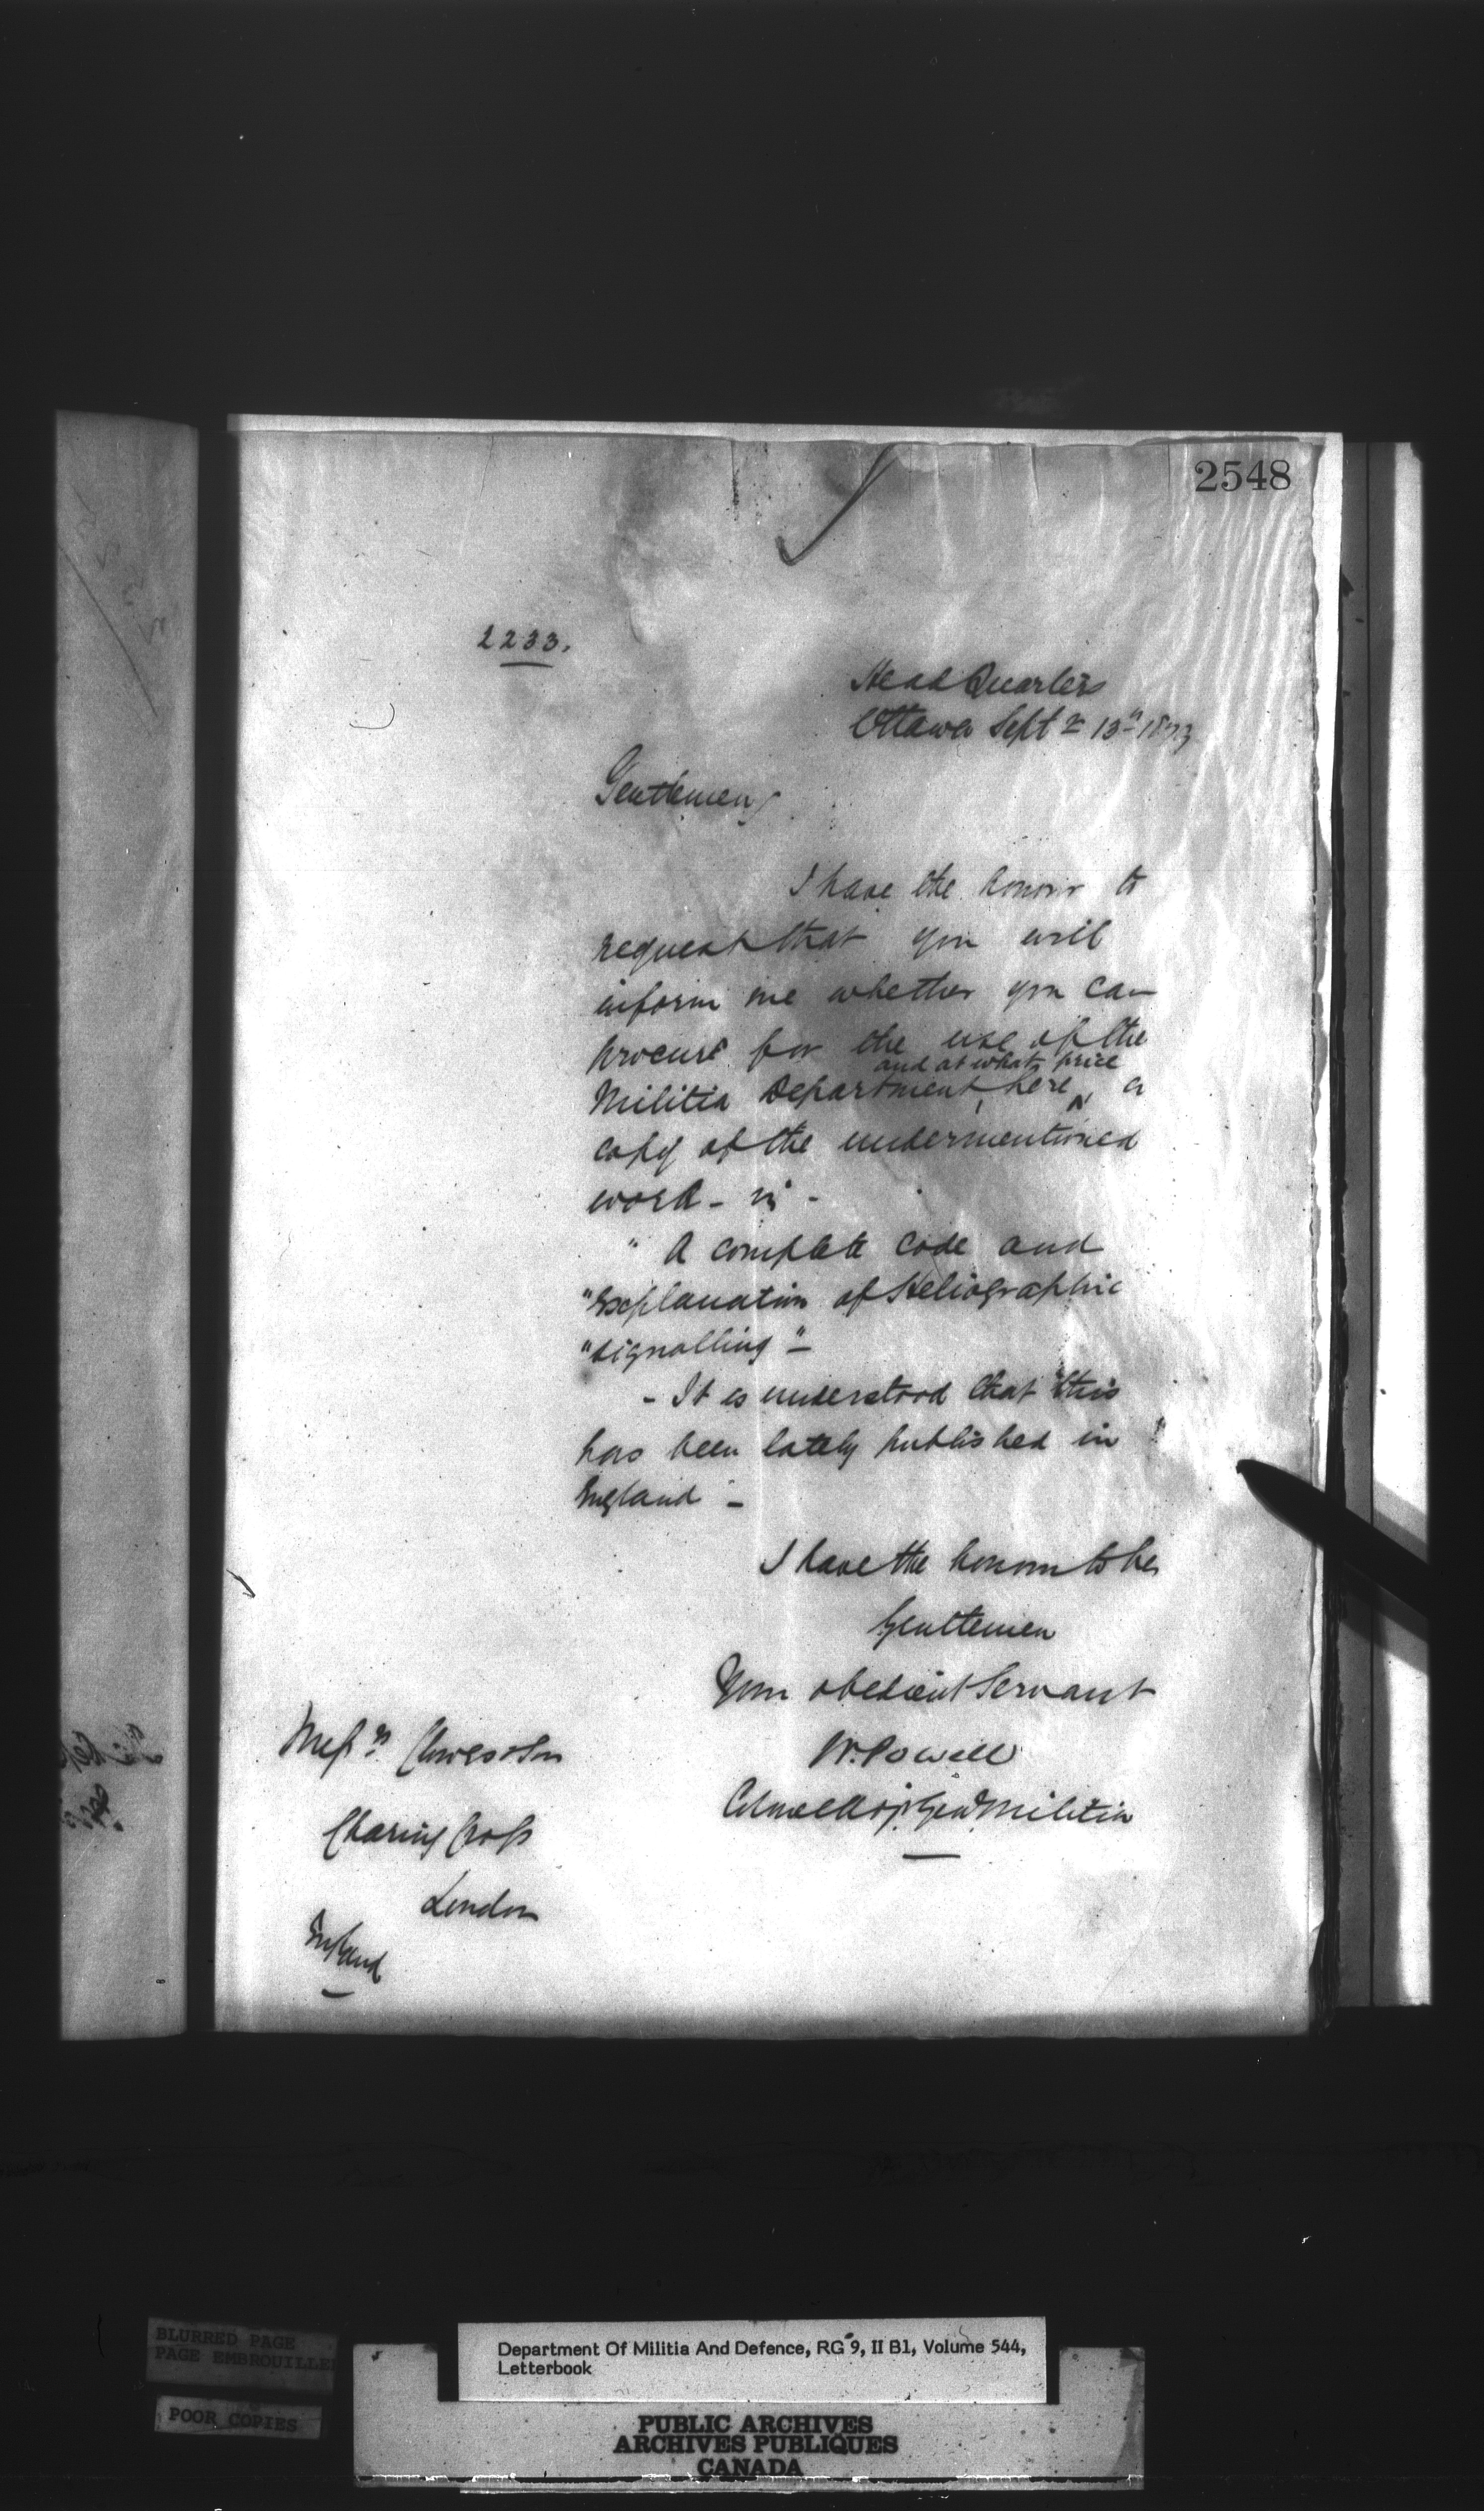 2548
2233.
Head Quarters
Ottawa Septr 13th 1873
Gentlemen,
I have the honour to
request that you will
inform me whether you can
procure for the use of the
and at what price
Militia Department here, a
copy of the undermentioned
work - viz -
" A complete Code and
"Explanation of Heliographic
"signalling" -
- It is understood that this
has been lately published in
England -
I have the honour to be
Gentlemen
Your obedient Servant
W. Powell
Colonel Adj. Genl Militia
Messrs Clowes & Son
Charing Cross
London
England
BLURRED PAGE
PAGE EMBROUILLEE
POOR COPIES
Department Of Militia And Defence, RG 9, II B1, Volume 544,
Letterbook
PUBLIC ARCHIVES
ARCHIVES PUBLIQUES
CANADA